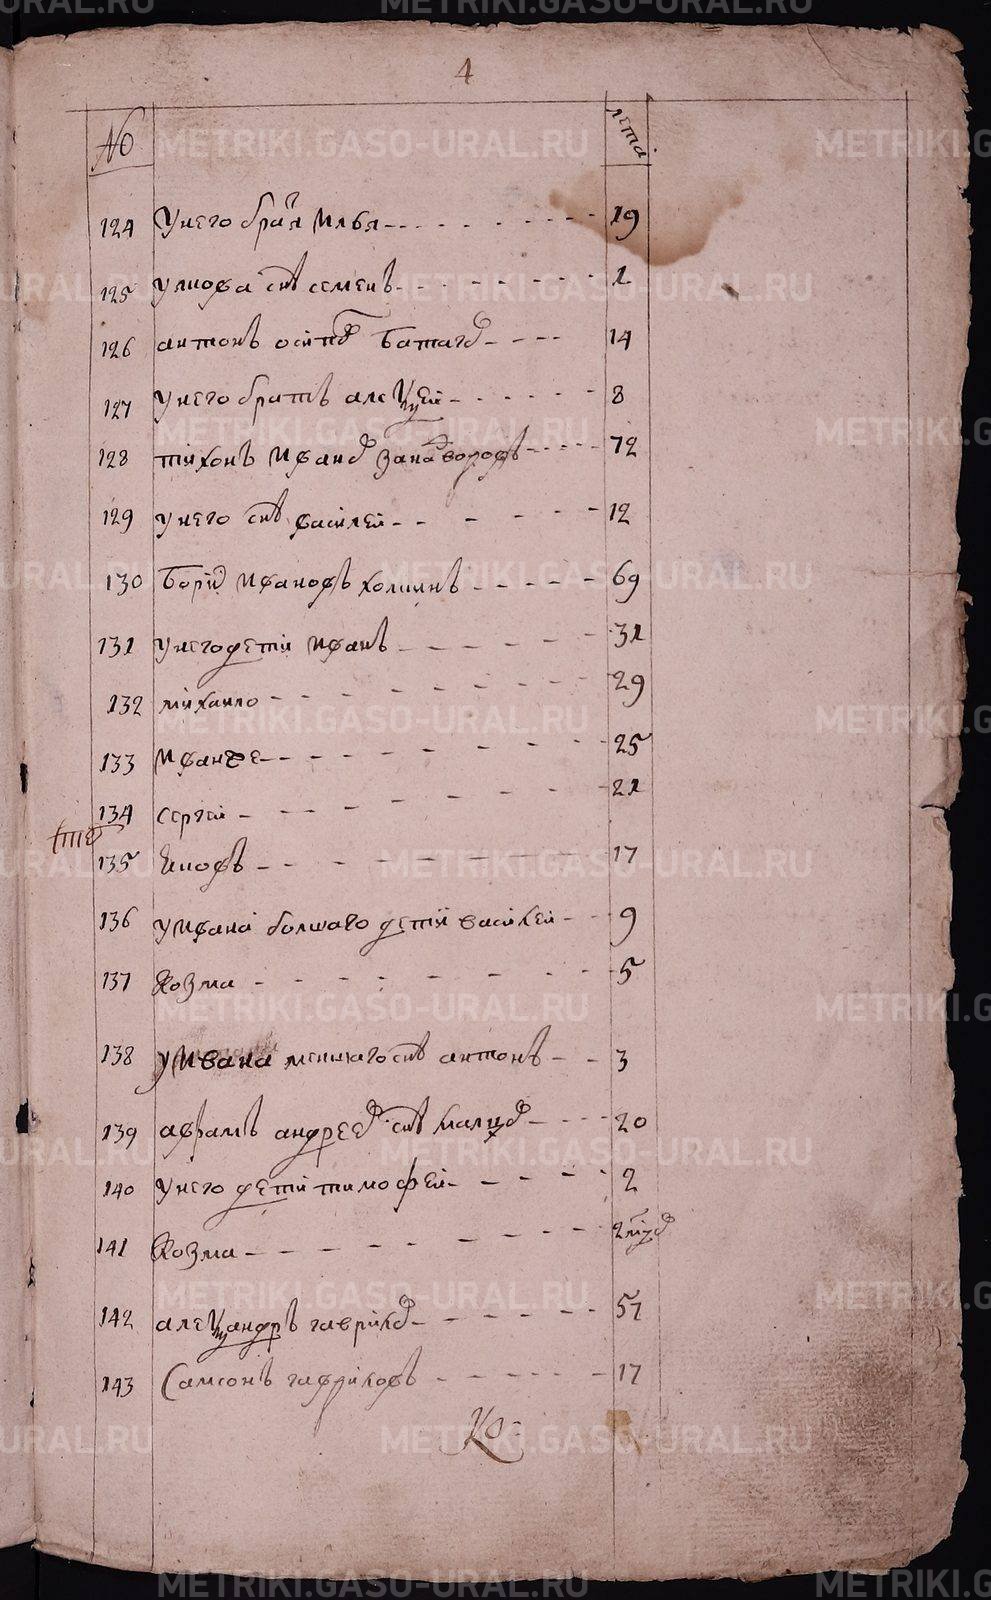 4
№ лета
124 Унего братъ Илья 19
125 Улиова снъ семенъ 1
126 антонъ осипов Батагов 14
127 Унего братъ алеѯей 8
128 тихонъ Иванов 72
129 Унего снъ василей 12
130 Борис Ивановъ холкинъ 69
131 Унего дети Иванъ 31
132 михаило 29
133 Иванже 25
134 сергеи 21
135 17
136 УИвана болшаго дети василей 9
137 Козма 5
138 УИвана меншаго снъ антонъ 3
139 аврамъ андреев снъ 20
140 Унего дети тимофей 2
141 Козма 2
142 алеѯандръ гаврилов 57
143 Самсонъ 17
METRIKI.GASO-URAL.RU